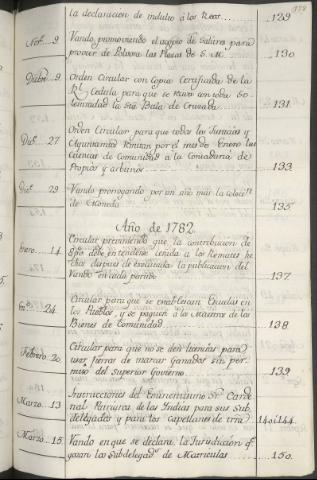 la declaracion de indulto á los Reos..... 129
Nov.e 9 Vando promoviendo el acopio de salitres para
proveer de Polvora las Plazas de S. M. .... 130
Dizbre 9 Orden Circular con Copia Certificada de la
Rl Cedula para que se reciva con toda So-
lemnidad la Sta Bula de Cruzada. 131
Dize 27 Orden Circular para que todas las Justicias y
Ayuntamtos remitan por el mes de Enero las
Cuentas de Comunidad á la Contaduria de
Propios y arbitrios. 133
Dize 29 Vando prorrogando por un año mas la
de Moneda 135
Año de 1782.
Enero. 14. Circular previniendo que la contribucion de
debe entenderse ceñida á los Remates he-
chos despues de executada la publicacion del
Vando en cada partido 137
En.o 24. Circular para que se establezcan Escuelas en
los Pueblos, y se paguen á los Maestros de los
Bienes de Comunidad. 138
Febrero 20 Circular para que no se den licencias para
usar fierros de marcar Ganados sin per-
miso del Superior Govierno. 139
Marzo. 13 Instrucciones del Eminentisimo Sr. Carde-
nal Patriarca de las Yndias para sus Sub-
delegados y para los Capellanes de 140 i 144.
Marzo. 15 Vando en que se declara la Jurisdiccion qe
gozan los Subdelegads de Matriculas 150.